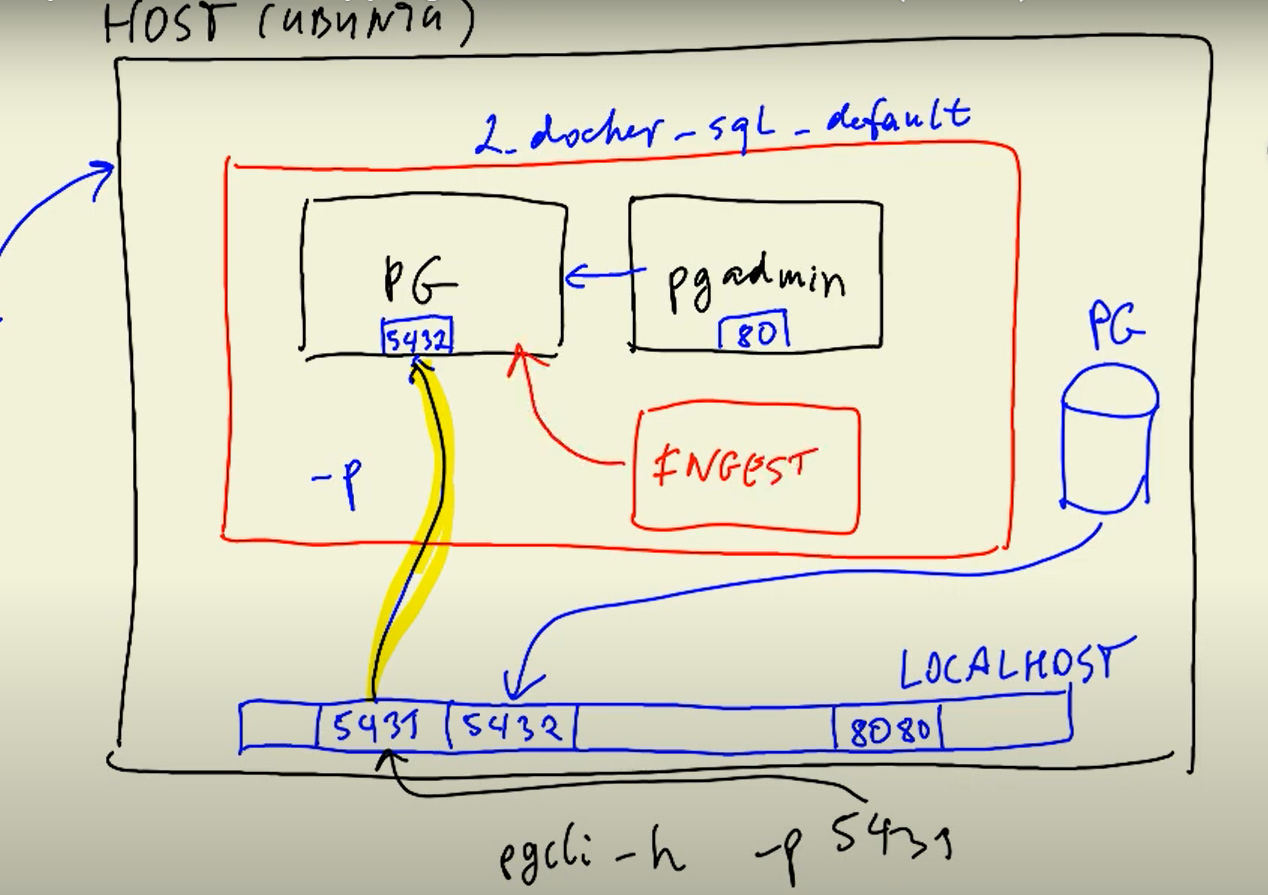 HOST (UBUNTU)
2_docker_sql_default
PG
5432
pgadmin
80
PG
-p
INGEST
LOCALHOST
5431
5432
8080
pgcli -h -p 5431